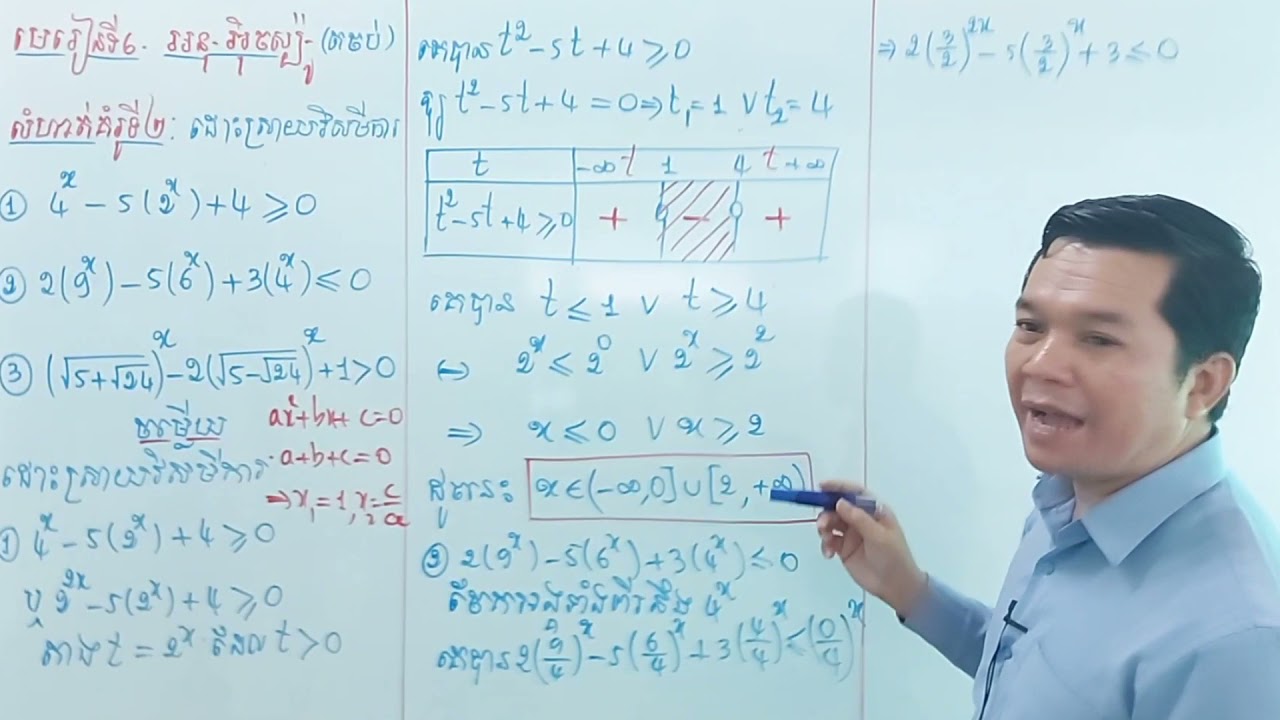 មេរៀនទី៦. អនុ.អ៊ិចស្ប៉ូ. (តចប់)
លំហាត់គំរូទី២: ដោះស្រាយវិសមីការ
① 4^x - 5(2^x) + 4 ⩾ 0
② 2(9^x) - 5(6^x) + 3(4^x) ≤ 0
③ (√5+√24)^x - 2(√5-√24)^x + 1 > 0
ចម្លើយ
ax²+bx+c=0
a+b+c=0
⇒ x₁=1, x₂=c/a
ដោះស្រាយវិសមីការ
① 4^x - 5(2^x) + 4 ⩾ 0
ឬ 2^2x - 5(2^x) + 4 ⩾ 0
តាង t = 2^x ដែល t > 0
គេបាន t² - 5t + 4 ⩾ 0
ឬ t² - 5t + 4 = 0 ⇒ t₁ = 1 ∨ t₂ = 4
t -∞ t 1 4 t +∞
t² - 5t + 4 ⩾ 0 + - +
គេបាន t ≤ 1 ∨ t ⩾ 4
↔ 2^x ≤ 2^0 ∨ 2^x ⩾ 2^2
⇒ x ≤ 0 ∨ x ⩾ 2
ដូចនេះ x ∈ (-∞, 0] ∪ [2, +∞)
② 2(9^x) - 5(6^x) + 3(4^x) ≤ 0
ចែកអង្គទាំងពីរនឹង 4^x
គេបាន 2(9/4)^x - 5(6/4)^x + 3(4/4)^x ≤ (0/4)^x
⇒ 2(3/2)^2x - 5(3/2)^x + 3 ≤ 0